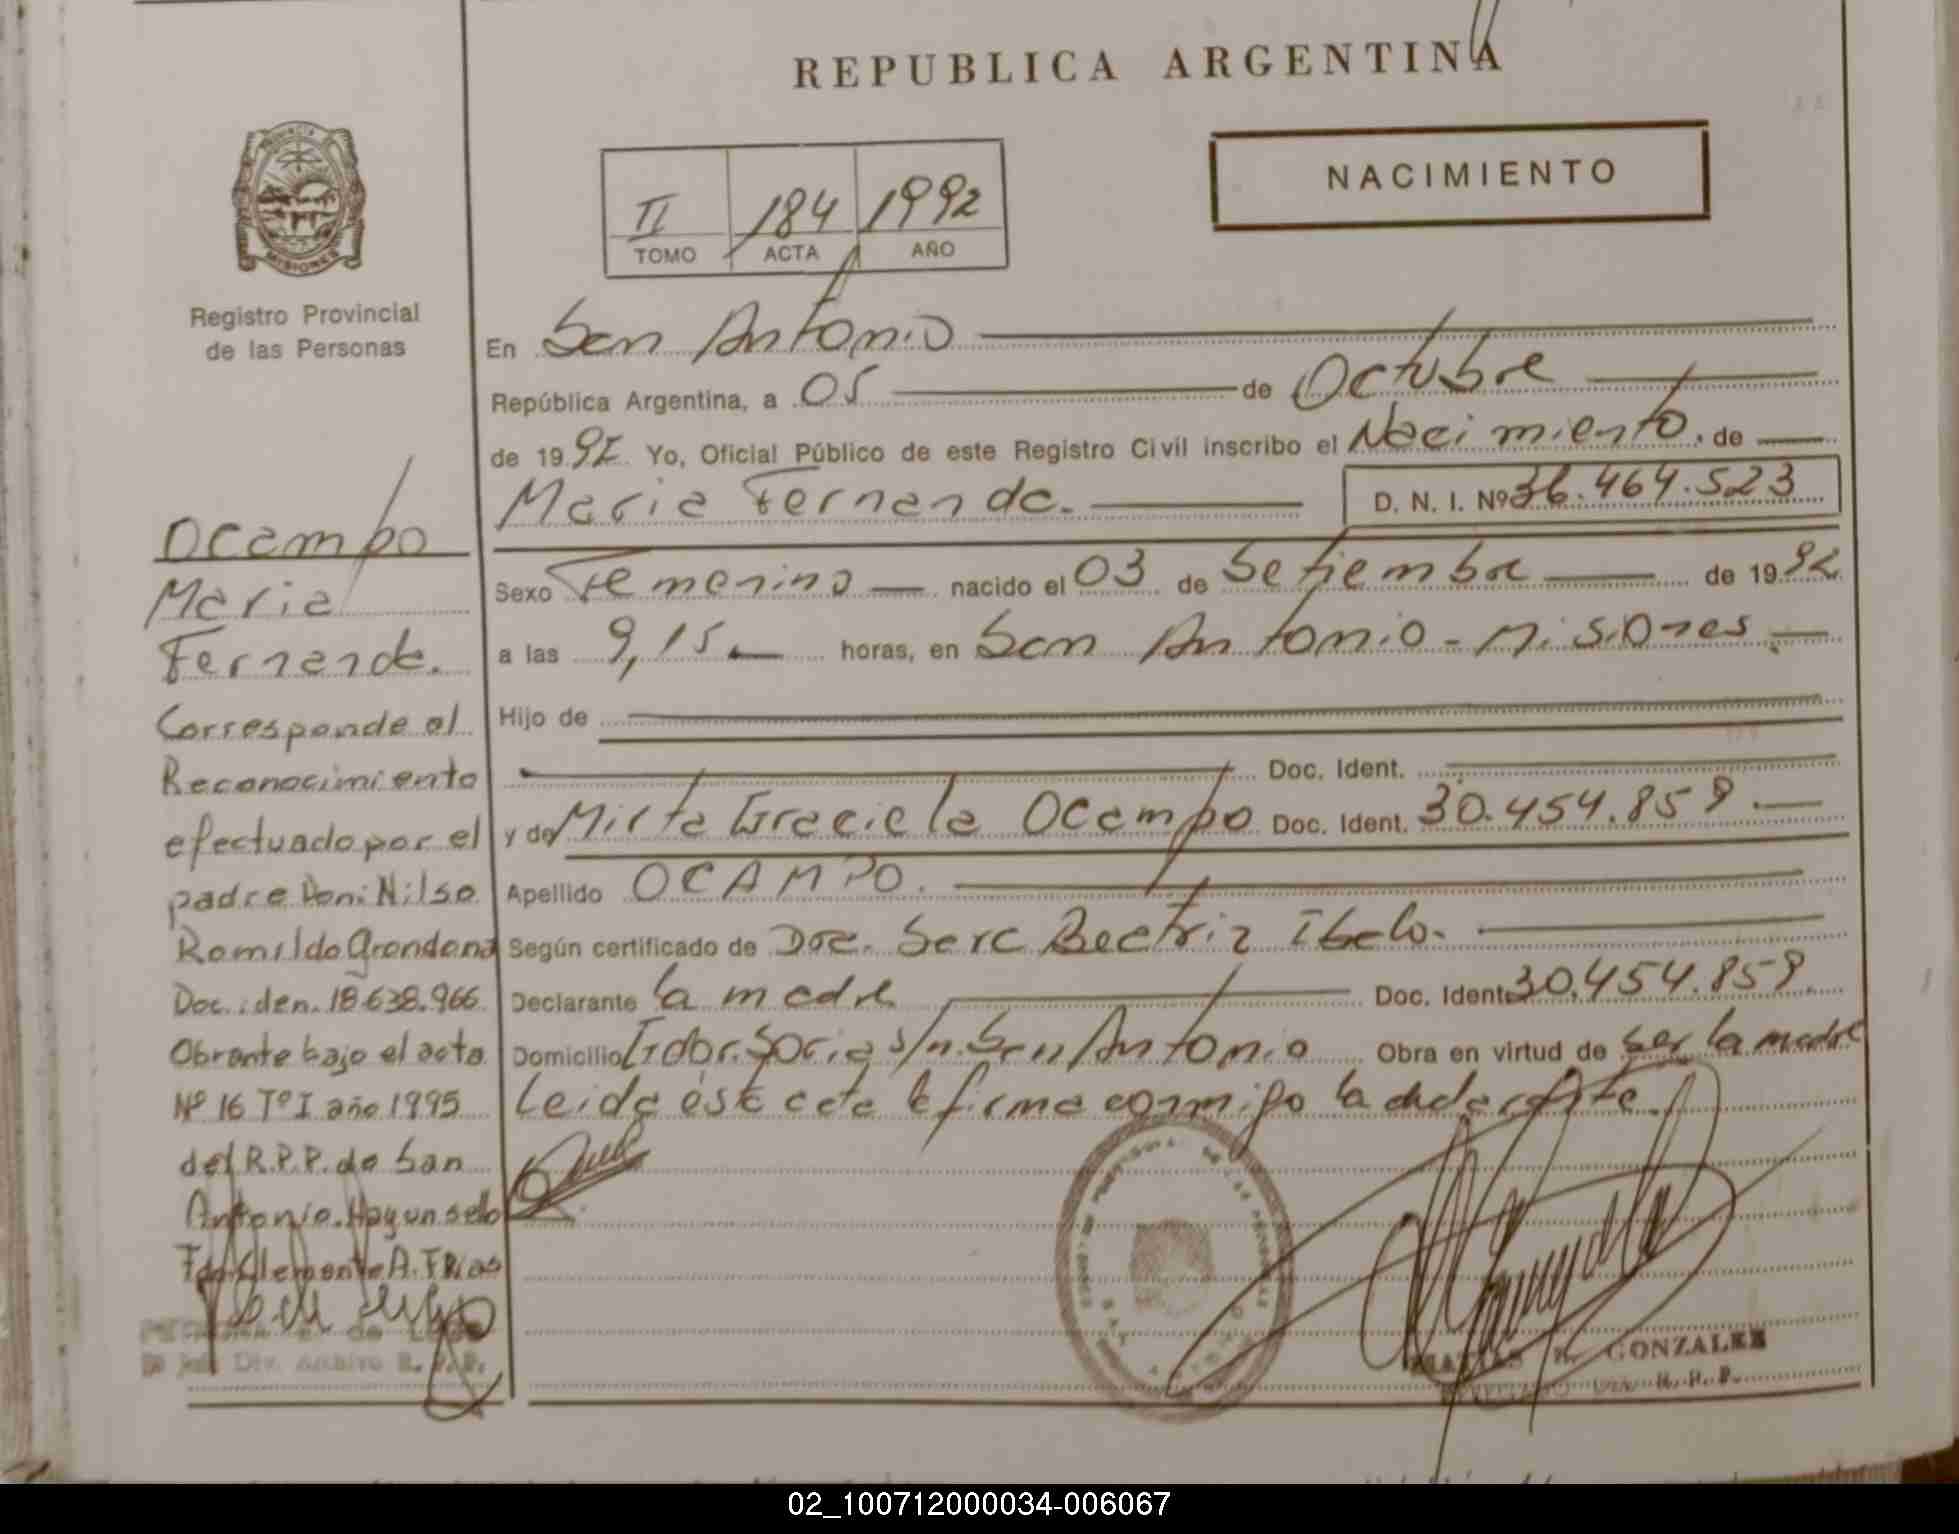 REPUBLICA ARGENTINA
NACIMIENTO
II 184 1992
TOMO ACTA AÑO
PROVINCIA
MISIONES
Registro Provincial
de las Personas
En San Antonio
República Argentina, a 05 de Octubre
de 1992 Yo, Oficial Público de este Registro Civil inscribo el Nacimiento, de
Maria Fernanda. D. N. I. Nº 36.464.523
Sexo Femenino nacido el 03 de Setiembre de 1992
a las 9,15 horas, en San Antonio - Misiones
Hijo de
Doc. Ident.
y de Mirta Graciela Ocampo Doc. Ident. 30.454.859
Apellido OCAMPO.
Según certificado de Beatriz
Declarante la madre Doc. Ident. 30.454.859
Domicilio s/n. San Antonio Obra en virtud de ser la madre
Leida ésta acta la firma conmigo la declarante.
Ocampo
Maria
Fernanda.
Corresponde al
Reconocimiento
efectuado por el
padre Don: Nilso
Romildo Grondona
Doc. iden. 18.638.966
Obrante bajo el acta
Nº 16 Tº I año 1995
del R.P.P. de San
Antonio. Hay un sello
Fdo. Clemente A. Frias
Div. Archivo R. P. P.
GONZALEZ
02_100712000034-006067